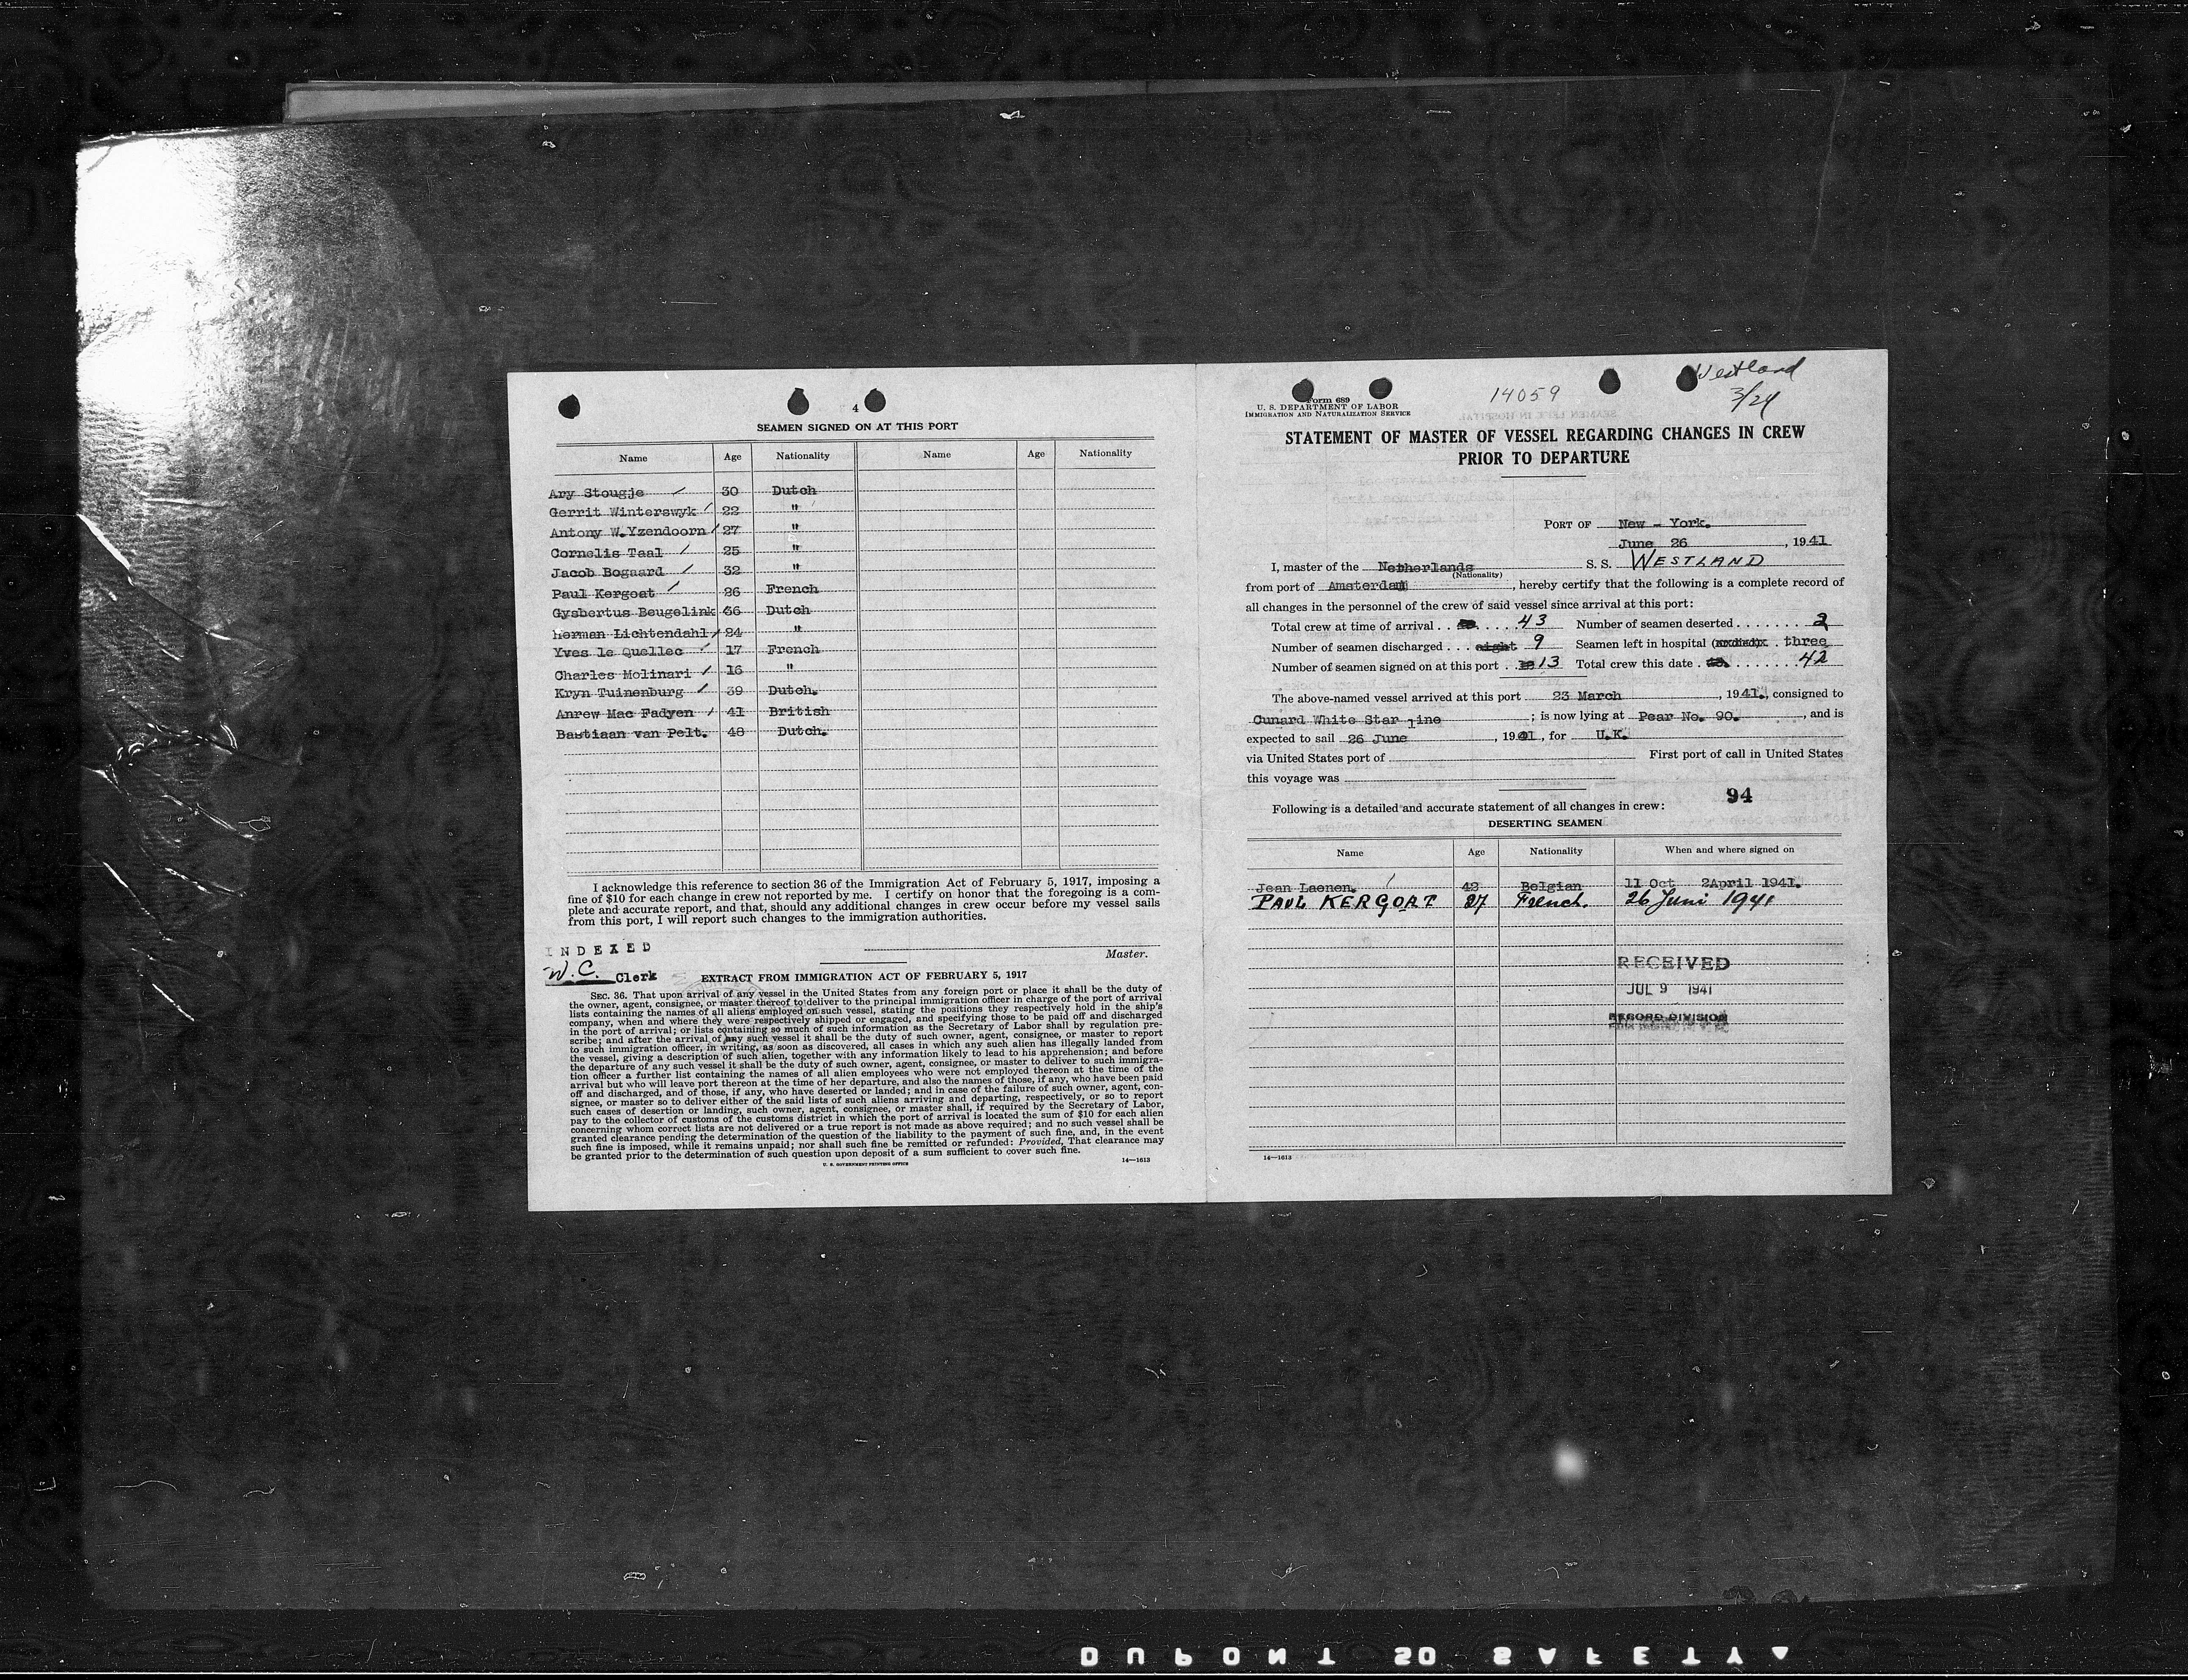 4
SEAMEN SIGNED ON AT THIS PORT
Name Age Nationality Name Age Nationality
Ary Stougje 30 Dutch
Gerrit Winterswyk 22 "
Antony W.Yzendoorn 27 "
Cornelis Taal 25 "
Jacob Bogaard 32 "
Paul Kergoat 26 French
Gysbertus Beugelink 36 Dutch
Herman Lichtendahl 24 "
Yves le Quellec 17 French
Charles Molinari 16 "
Kryn Tuinenburg 39 Dutch.
Anrew Mac Fadyen 41 British
Bastiaan van Pelt. 48 Dutch.
I acknowledge this reference to section 36 of the Immigration Act of February 5, 1917, imposing a
fine of $10 for each change in crew not reported by me. I certify on honor that the foregoing is a com-
plete and accurate report, and that, should any additional changes in crew occur before my vessel sails
from this port, I will report such changes to the immigration authorities.
INDEXED
Master.
W.C. Clerk
EXTRACT FROM IMMIGRATION ACT OF FEBRUARY 5, 1917
SEC. 36. That upon arrival of any vessel in the United States from any foreign port or place it shall be the duty of
the owner, agent, consignee, or master thereof to deliver to the principal immigration officer in charge of the port of arrival
lists containing the names of all aliens employed on such vessel, stating the positions they respectively hold in the ship's
company, when and where they were respectively shipped or engaged, and specifying those to be paid off and discharged
in the port of arrival; or lists containing so much of such information as the Secretary of Labor shall by regulation pre-
scribe; and after the arrival of any such vessel it shall be the duty of such owner, agent, consignee, or master to report
to such immigration officer, in writing, as soon as discovered, all cases in which any such alien has illegally landed from
the vessel, giving a description of such alien, together with any information likely to lead to his apprehension; and before
the departure of any such vessel it shall be the duty of such owner, agent, consignee, or master to deliver to such immigra-
tion officer a further list containing the names of all alien employees who were not employed thereon at the time of the
arrival but who will leave port thereon at the time of her departure, and also the names of those, if any, who have been paid
off and discharged, and of those, if any, who have deserted or landed; and in case of the failure of such owner, agent, con-
signee, or master so to deliver either of the said lists of such aliens arriving and departing, respectively, or so to report
such cases of desertion or landing, such owner, agent, consignee, or master shall, if required by the Secretary of Labor,
pay to the collector of customs of the customs district in which the port of arrival is located the sum of $10 for each alien
concerning whom correct lists are not delivered or a true report is not made as above required; and no such vessel shall be
granted clearance pending the determination of the question of the liability to the payment of such fine, and, in the event
such fine is imposed, while it remains unpaid; nor shall such fine be remitted or refunded: Provided, That clearance may
be granted prior to the determination of such question upon deposit of a sum sufficient to cover such fine.
U. S. GOVERNMENT PRINTING OFFICE
14—1613
Westland
3/24
14059
Form 689
U. S. DEPARTMENT OF LABOR
IMMIGRATION AND NATURALIZATION SERVICE
STATEMENT OF MASTER OF VESSEL REGARDING CHANGES IN CREW
PRIOR TO DEPARTURE
PORT OF New - York.
June 26, 1941
I, master of the Netherlands S. S. WESTLAND
(Nationality)
from port of Amsterdam, hereby certify that the following is a complete record of
all changes in the personnel of the crew of said vessel since arrival at this port:
Total crew at time of arrival . . 43 Number of seamen deserted . . . . . . . 2
Number of seamen discharged . . . eight 9 Seamen left in hospital ( . three
Number of seamen signed on at this port . . 13 Total crew this date . . . . . . . . 42
The above-named vessel arrived at this port 23 March, 1941., consigned to
Cunard White Star Line; is now lying at Pear No. 90., and is
expected to sail 26 June, 1941, for U.K.
via United States port of First port of call in United States
this voyage was
94
Following is a detailed and accurate statement of all changes in crew:
DESERTING SEAMEN
Name Age Nationality When and where signed on
Jean Laenen. 42 Belgian 11 Oct 2April 1941.
PAUL KERGOAT 27 French. 26 Juni 1941
RECEIVED
JUL 9 1941
RECORD DIVISION
14—1613
DUPONT 50 SAFETY